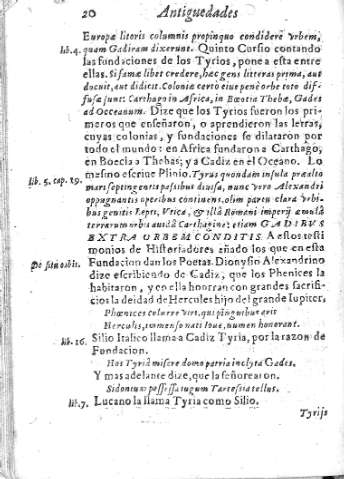 20 Antiguedades
Europæ litoris columnis propinquo condidere vrbem,
lib. 4. quam Gadiram dixerunt. Quinto Cursio contando
las fundaciones de los Tyrios, pone a esta entre
ellas. Si famæ libet credere, hæc gens litteras prima, aut
docuit, aut didicit. Coloniæ certè eius penè orbe toto dif-
fusæ sunt: Carthago in Africa, in Bœotia Thebæ, Gades
ad Occeanum. Dize que los Tyrios fueron los pri-
meros que enseñaron, o aprendieron las letras,
cuyas colonias, y fundaciones se dilataron por
todo el mundo: en Africa fundaron a Carthago,
en Boecia a Thebas; y a Cadiz en el Oceano. Lo
lib. 5. cap. 19. mesmo escriue Plinio. Tyrus quondam insula præalto
mari septingentis passibus diuisa, nunc vero Alexandri
oppugnantis operibus continens. olim partu clara vrbi-
bus genitis Lepti, Vtica, & illa Romani imperij æmula
terrarum orbis auida Carthagine: etiam GADIBVS
EXTRA ORBEM CONDITIS. A estos testi
monios de Historiadores añado los que en esta
De situ orbis. Fundacion dan los Poetas. Dionysio Alexandrino
dize escribiendo de Cadiz, que los Phenices la
habitaron, y en ella honrran con grandes sacrifi-
cios la deidad de Hercules hijo del grande Iupiter,
Phœnices coluere viri, qui pinguibus aris
Herculis, immenso nati Ioue, numen honorant.
lib. 16. Silio Italico llama a Cadiz Tyria, por la razon de
Fundacion.
Has Tyria misere domo patria inclyta Gades.
Y mas adelante dize, que la señorearon.
Sidonium possessa iugum Tartessia tellus.
lib. 7. Lucano la llama Tyria como Silio.
Tyrijs